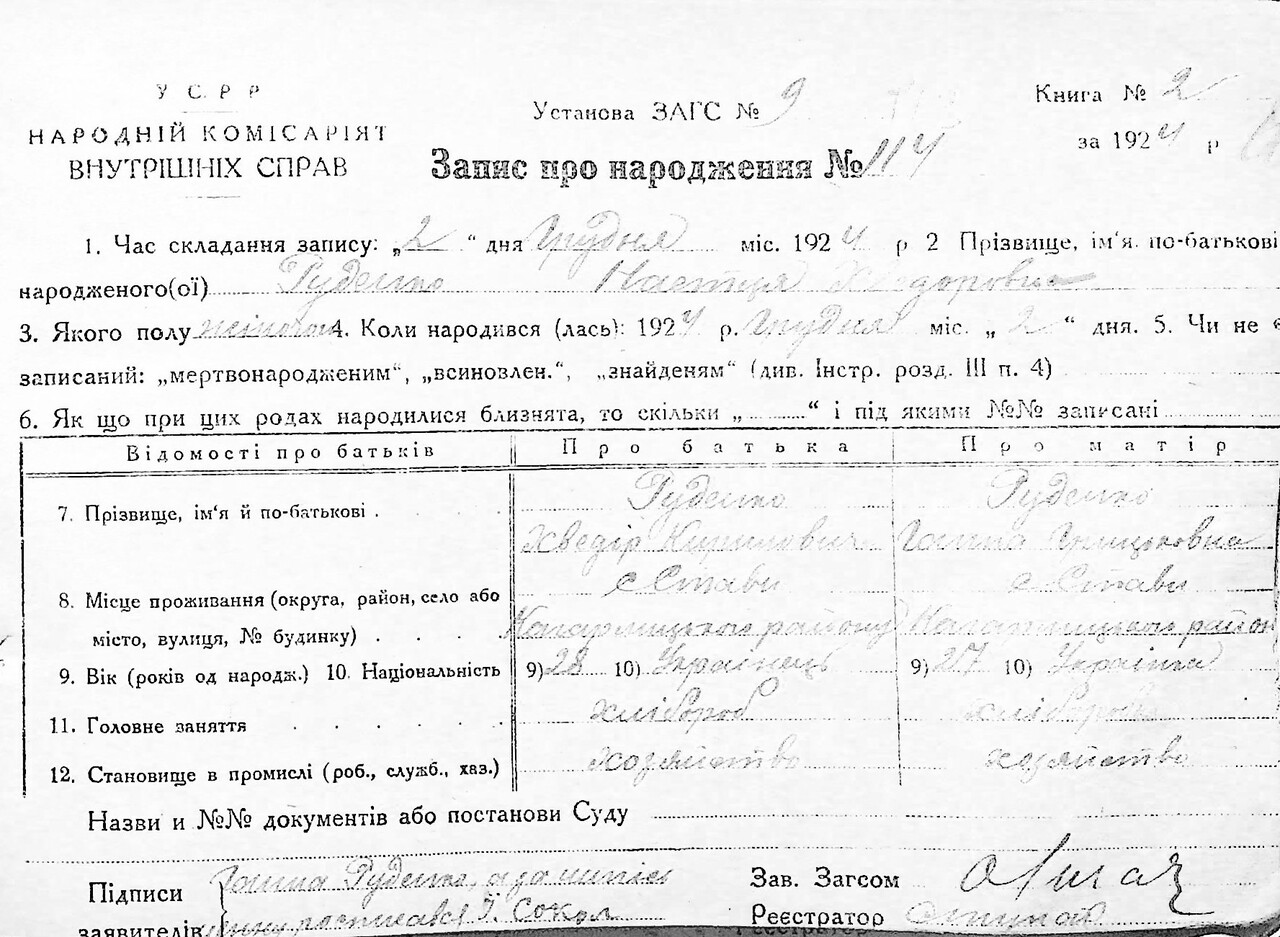 У С Р Р
НАРОДНІЙ КОМІСАРІЯТ
ВНУТРІШНІХ СПРАВ
Установа ЗАГС № 9
Книга № 2
за 1924 р
Запис про народження № 114
1. Час складання запису: „2“ дня Грудня міс. 1924 р 2 Прізвище, ім‘я. по-батькові
народженого(ої) Руденко Настця Хведоровна
3. Якого полу жіночого 4. Коли народився (лась): 1924 р. Грудня міс. „2“ дня. 5. Чи не
записаний: „мертвонародженим“, „всиновлен.“, „знайденям“ (див. Інстр. розд. III п. 4)
6. Як що при цих родах народилися близнята, то скільки „ “ і під якими №№ записані
Відомості про батьків Про батька Про матір
Руденко Руденко
7. Прізвище, ім‘я й по-батькові .
Хведір Кирилович Ганна Грицьковна
с Стави с Стави
8. Місце проживання (округа, район, село або
місто, вулиця, № будинку) . Кагарлицького району район
9. Вік (років од народж.) 10. Національність 9) 28 10) Українець 9) 27 10) Українка
11. Головне заняття хлібороб
12. Становище в промислі (роб., служб., хаз.) хозяйство хозяйство
Назви и №№ документів або постанови Суду
Підписи Ганна Руденко, а за
заявителів росписався Сокол
Зав. Загсом
Реєстратор